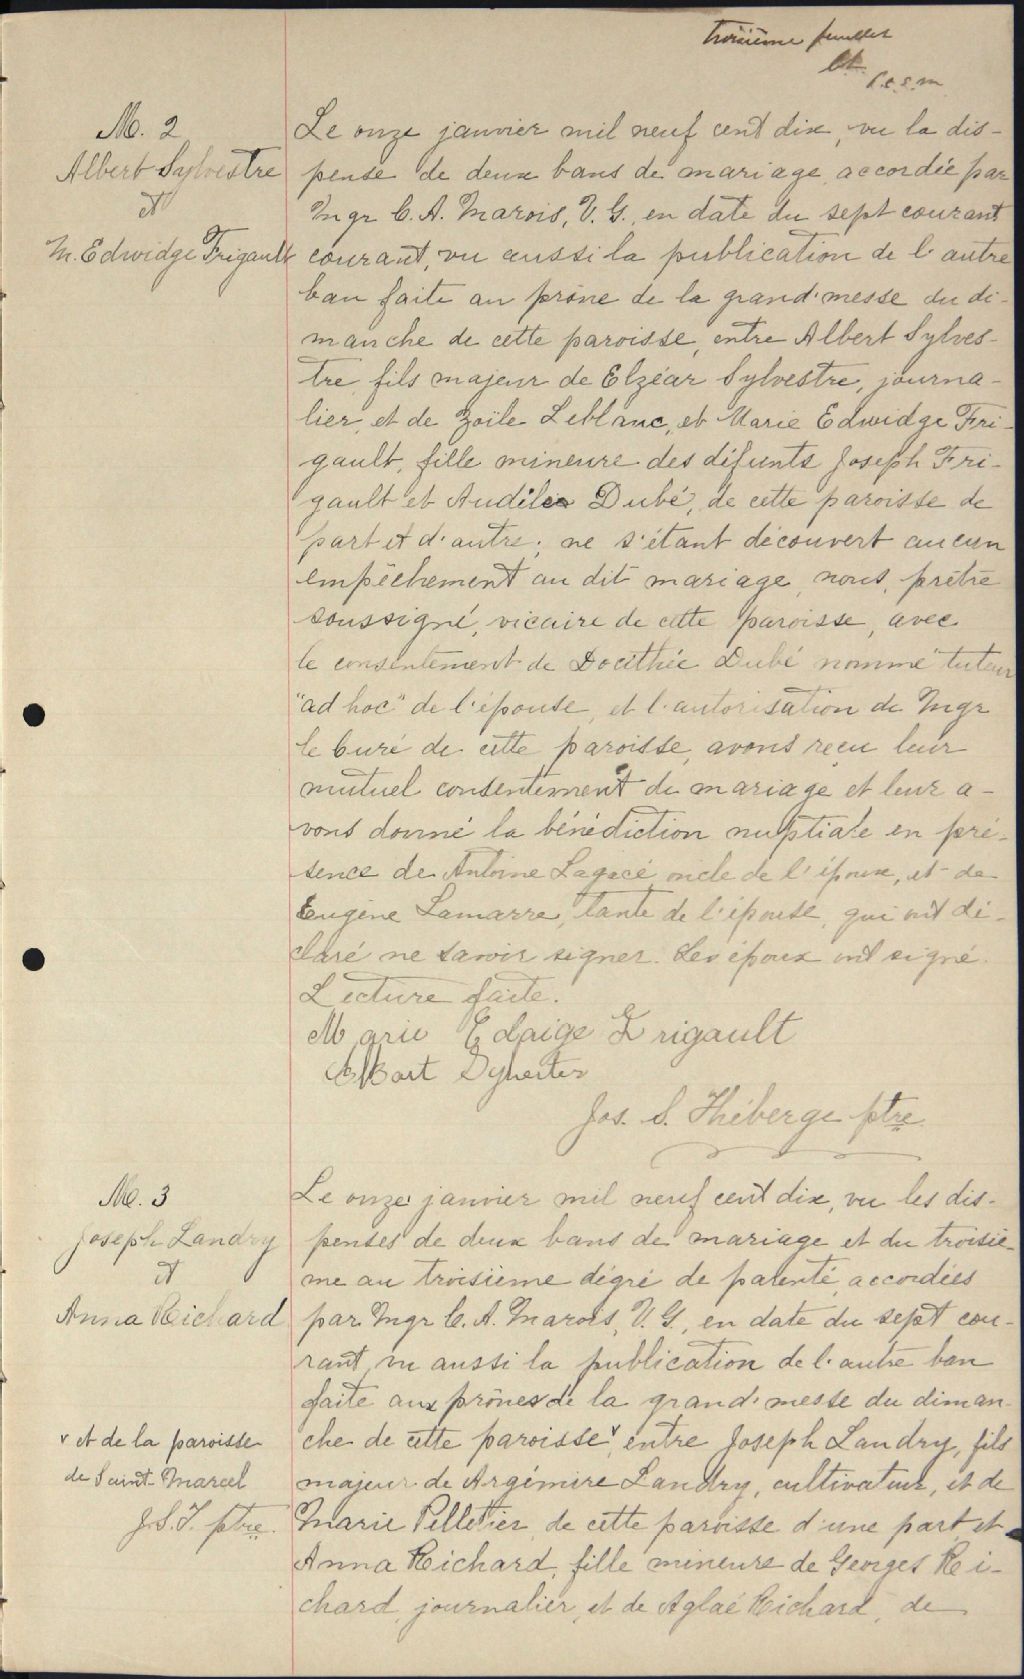 troisième feuillet
P.C.S.M
M. 2
Albert Sylvestre
et
M. Edwidge Frigault
Le onze janvier mil neuf cent dix, vu la dis-
pense de deux bans de mariage accordée par
Mgr C. A. Marois, V. G., en date du sept courant
courant, vu aussi la publication de l'autre
ban faite au prône de la grand'messe du di-
manche de cette paroisse, entre Albert Sylves-
tre, fils majeur de Elzéar Sylvestre, journa-
lier, et de Zoïle Leblanc, et Marie Edwidge Fri-
gault, fille mineure des défunts Joseph Fri-
gault et Audélia Dubé, de cette paroisse de
part et d'autre; ne s'étant découvert aucun
empêchement au dit mariage, nous, prêtre
soussigné, vicaire de cette paroisse, avec
le consentement de Docithée Dubé nommé tuteur
"ad hoc" de l'épouse, et l'autorisation de Mgr
le Curé de cette paroisse, avons reçu leur
mutuel consentement de mariage et leur a-
vons donné la bénédiction nuptiale en pré-
sence de Antoine Lagacé, oncle de l'époux, et de
Eugène Lamarre, tante de l'épouse, qui ont dé-
claré ne savoir signer. Les époux ont signé.
Lecture faite.
Marie Edaige Frigault
Albart Sylvester
Jos. S. Théberge ptre
M. 3
Joseph Landry
et
Anna Richard
Le onze janvier mil neuf cent dix, vu les dis-
penses de deux bans de mariage et du troisiè-
me au troisième dégré de parenté, accordées
par Mgr C. A. Marois, V. G., en date du sept cou-
rant, vu aussi la publication de l'autre ban
faite aux prônes de la grand'messe du diman-
che de cette paroisse v entre Joseph Landry, fils
majeur de Argémire Landry, cultivateur, et de
Marie Pelletier, de cette paroisse d'une part, et
Anna Richard, fille mineure de Georges Ri-
chard, journalier, et de Aglaé Richard, de
v et de la paroisse
de Saint-Marcel
J.S.T. ptre.